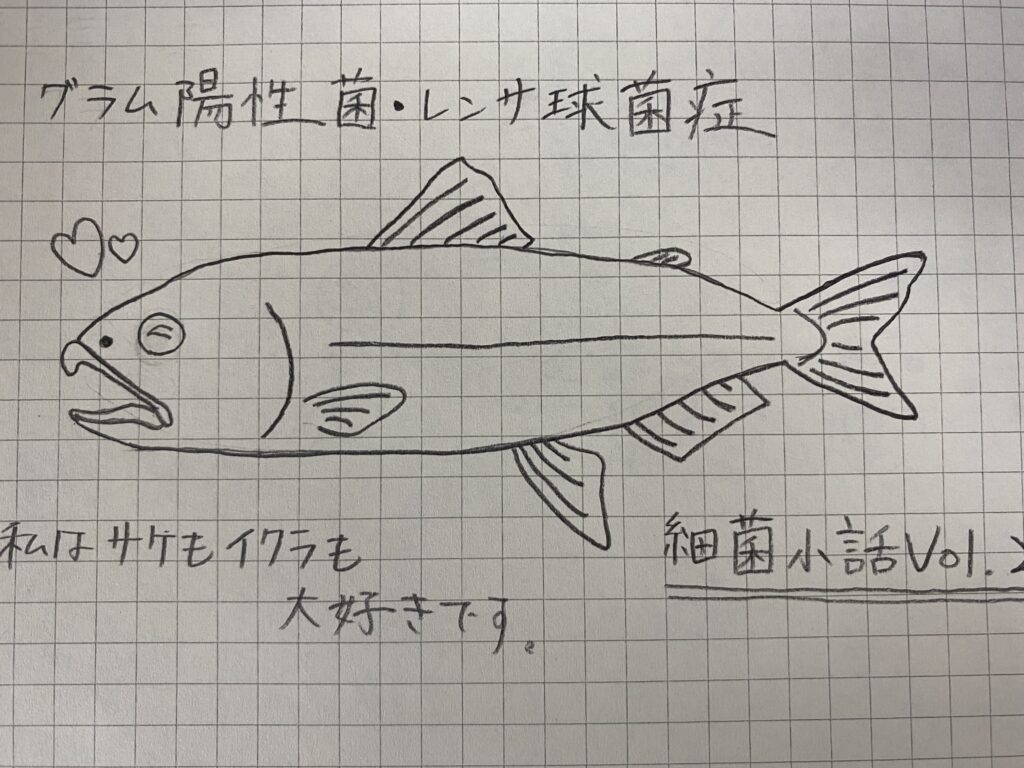 グラム陽性菌・レンサ球菌症
私はサケもイクラも
大好きです。
細菌小話Vol.2